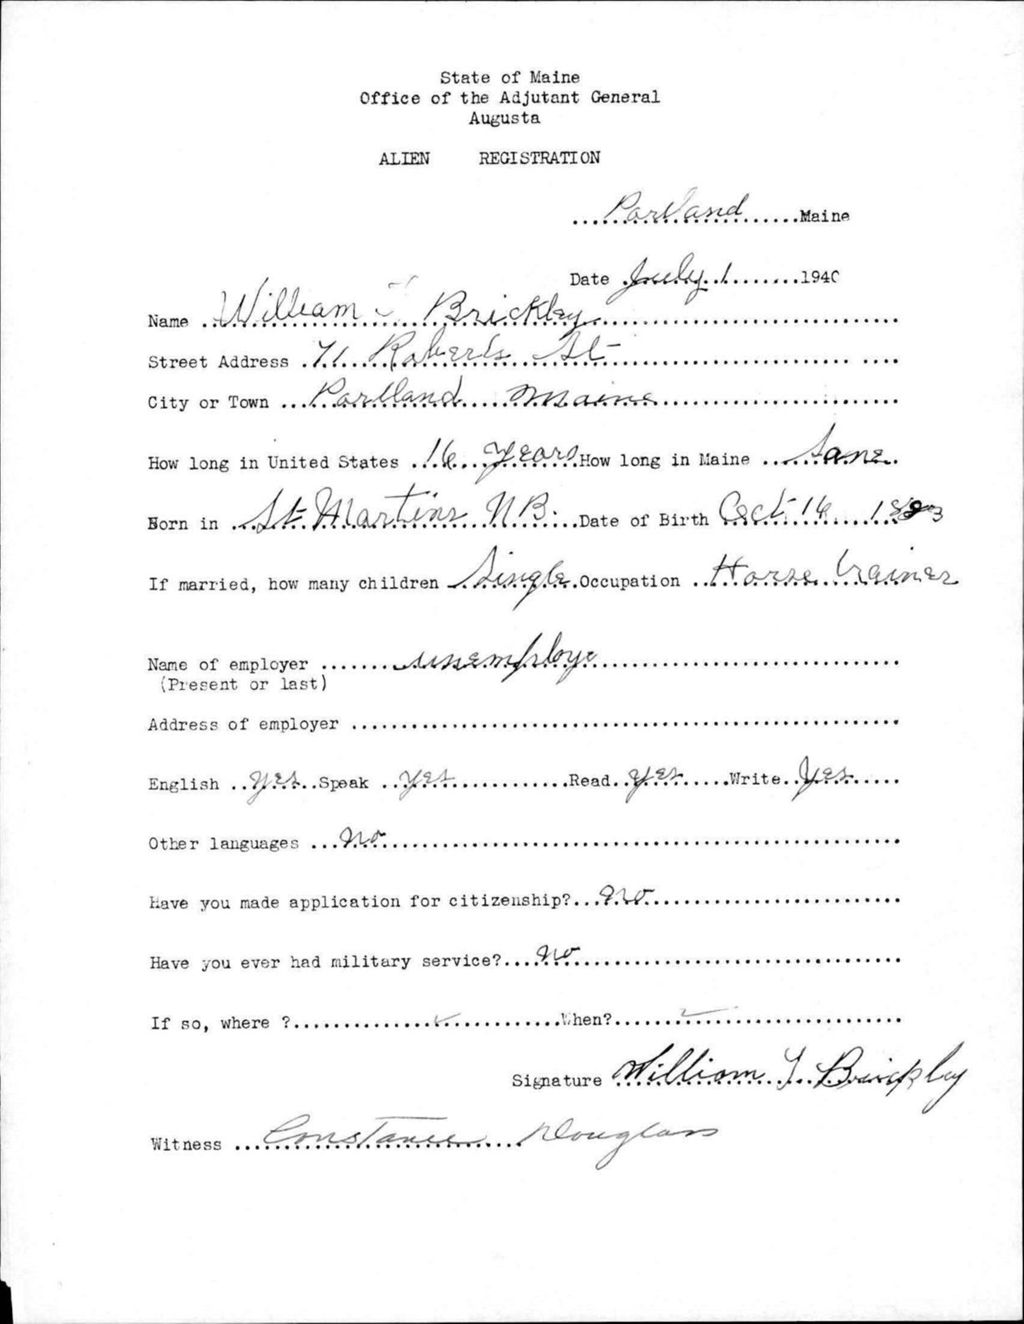 State of Maine
Office of the Adjutant General
Augusta
ALIEN REGISTRATION
Portland Maine
Date July 1 1940
Name William Brickley
Street Address 71 Roberts St
City or Town Portland Maine
How long in United States 16 years How long in Maine Same
Born in St Martins N B. Date of Birth Oct 16
If married, how many children Single Occupation Horse trainer
Name of employer unemploye
(Present or last)
Address of employer
English yes Speak yes Read yes Write yes
Other languages no
Have you made application for citizenship? no
Have you ever had military service? no
If so, where ? When?
Signature William Brickley
Witness Constance Douglass